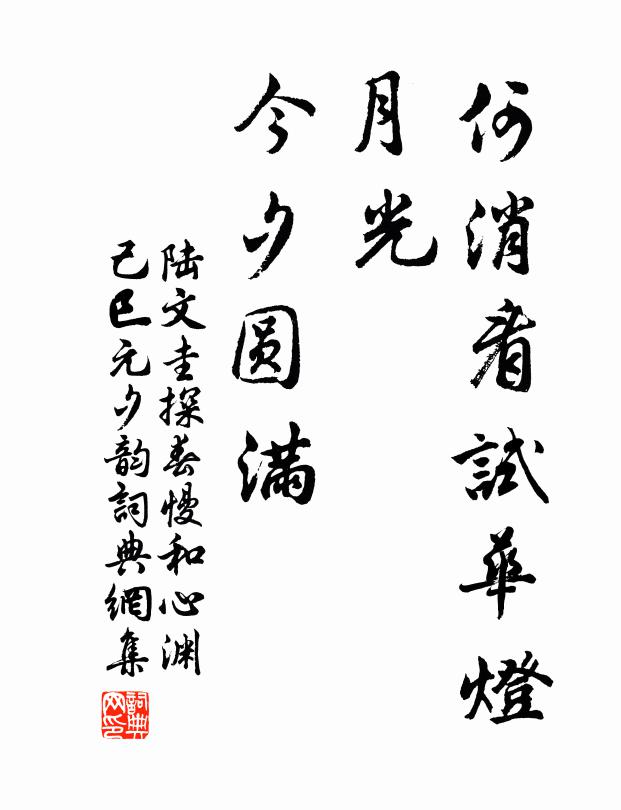 何消看試華燈
月光
今夕圆滿
陆文圭探春慢和心渊
己巳元夕韵詞典網集
詞典
网印